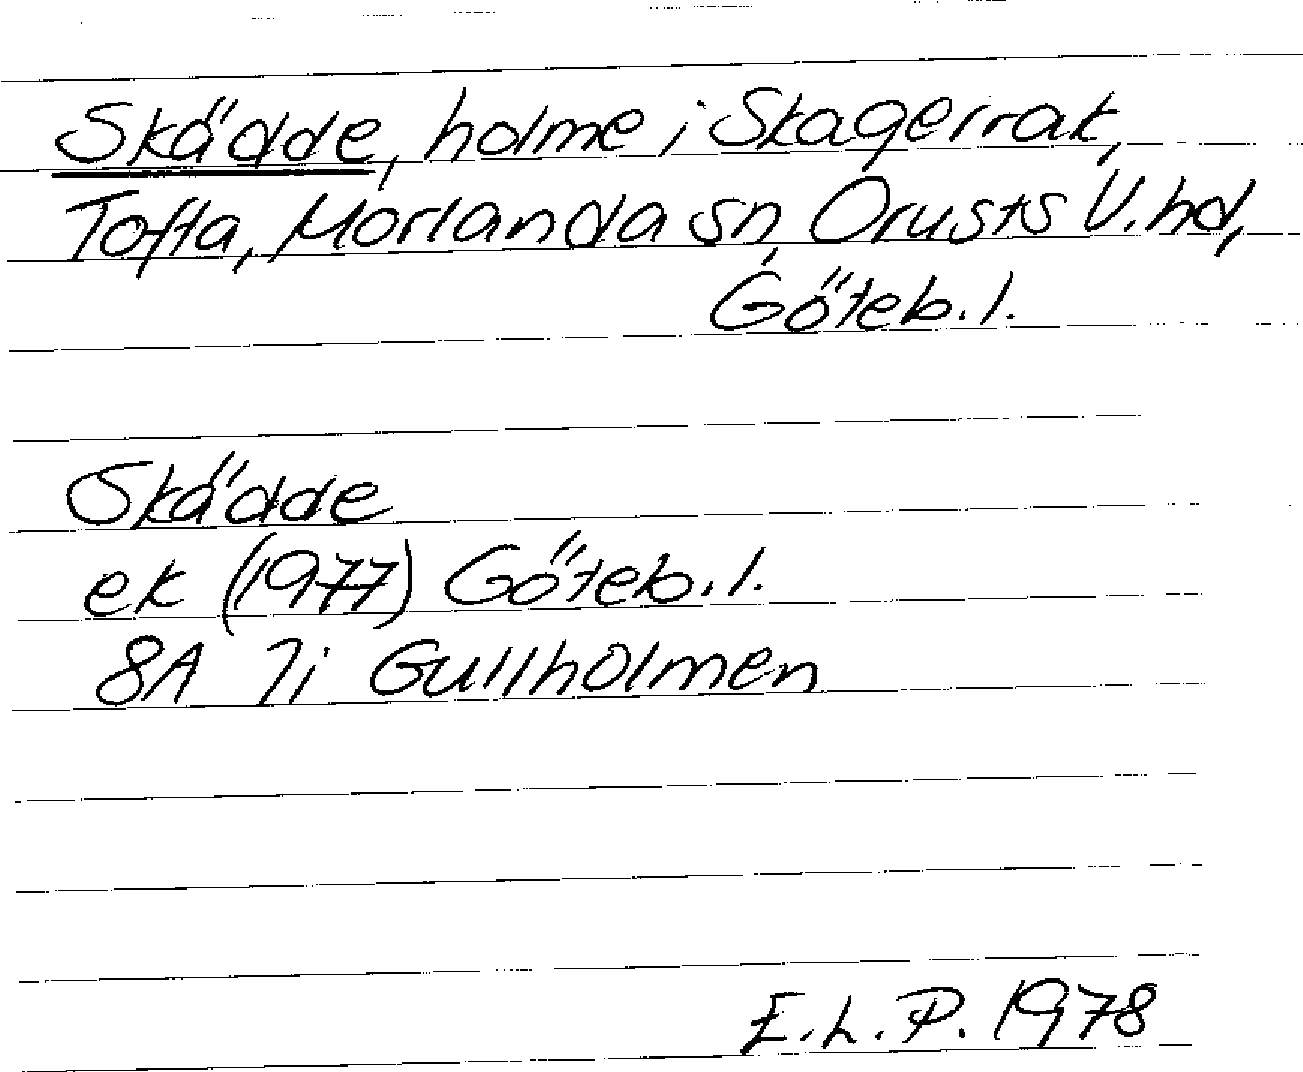 Skädde, holme i Skagerrak,
Tofta, Morlanda sn, Orusts V. hd,
Göteb. l.
Skädde
ek (1977) Göteb. l.
8A 7i Gullholmen
E. L. P. 1978